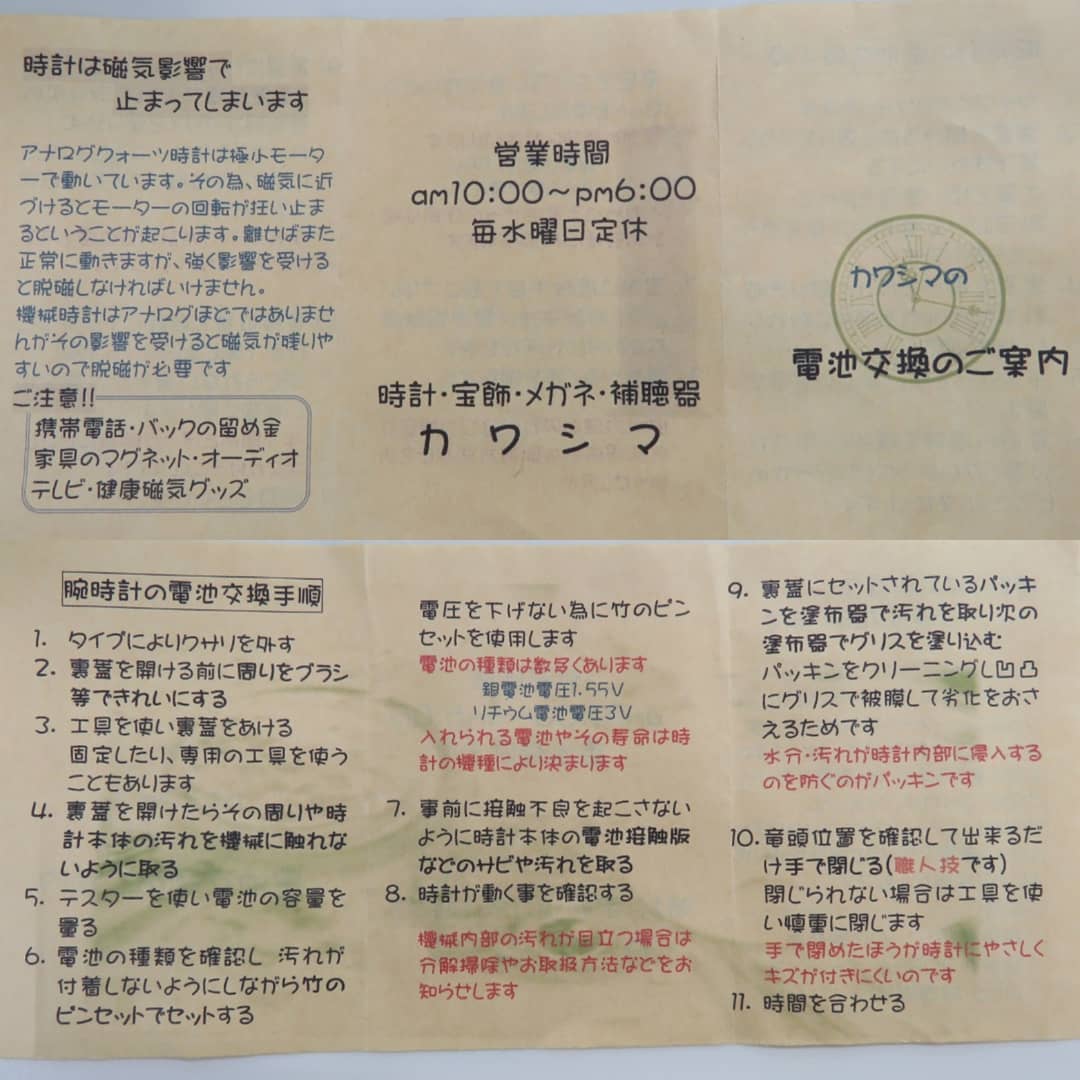 時計は磁気影響で
止まってしまいます
アナログクォーツ時計は極小モータ
ーで動いています。その為、磁気に近
づけるとモーターの回転が狂い止ま
るということが起こります。離せばまた
正常に動きますが、強く影響を受ける
と脱磁しなければいけません。
機械時計はアナログほどではありませ
んがその影響を受けると磁気が残りや
すいので脱磁が必要です
ご注意!!
携帯電話・バックの留め金
家具のマグネット・オーディオ
テレビ・健康磁気グッズ
営業時間
am10:00〜pm6:00
毎水曜日定休
時計・宝飾・メガネ・補聴器
カワシマ
カワシマの
電池交換のご案内
腕時計の電池交換手順
1. タイプによりクサリを外す
2. 裏蓋を開ける前に周りをブラシ
等できれいにする
3. 工具を使い裏蓋をあける
固定したり、専用の工具を使う
こともあります
4. 裏蓋を開けたらその周りや時
計本体の汚れを機械に触れな
いように取る
5. テスターを使い電池の容量を
量る
6. 電池の種類を確認し 汚れが
付着しないようにしながら竹の
ピンセットでセットする
電圧を下げない為に竹のピン
セットを使用します
電池の種類は数多くあります
銀電池電圧1.55V
リチウム電池電圧3V
入れられる電池やその寿命は時
計の機種により決まります
7. 事前に接触不良を起こさない
ように時計本体の電池接触版
などのサビや汚れを取る
8. 時計が動く事を確認する
機械内部の汚れが目立つ場合は
分解掃除やお取扱方法などをお
知らせします
9. 裏蓋にセットされているパッキ
ンを塗布器で汚れを取り次の
塗布器でグリスを塗り込む
パッキンをクリーニングし凹凸
にグリスで被膜して劣化をおさ
えるためです
水分・汚れが時計内部に侵入する
のを防ぐのがパッキンです
10. 竜頭位置を確認して出来るだ
け手で閉じる(職人技です)
閉じられない場合は工具を使
い慎重に閉じます
手で閉めたほうが時計にやさしく
キズが付きにくいのです
11. 時間を合わせる